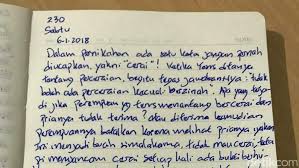 230
Sabtu
6-1-2018
Dalam pernikahan ada satu kata jangan pernah
diucapkan, yakni "cerai"! Ketika Yons ditanya
tentang perceraian, begitu tegas jawabannya: tidak
boleh ada perceraian kecuali berzinah. Apa yang
di jika perempuan yg terus menantang bercerai dan
prianya tidak terima? atau diterima kemudian
perempuannya batalkan karena melihat prianya yakin
Ini menjadi buah simalakama. tidak mau cerai, tetapi
mengancam cerai setiap kali ada bukti